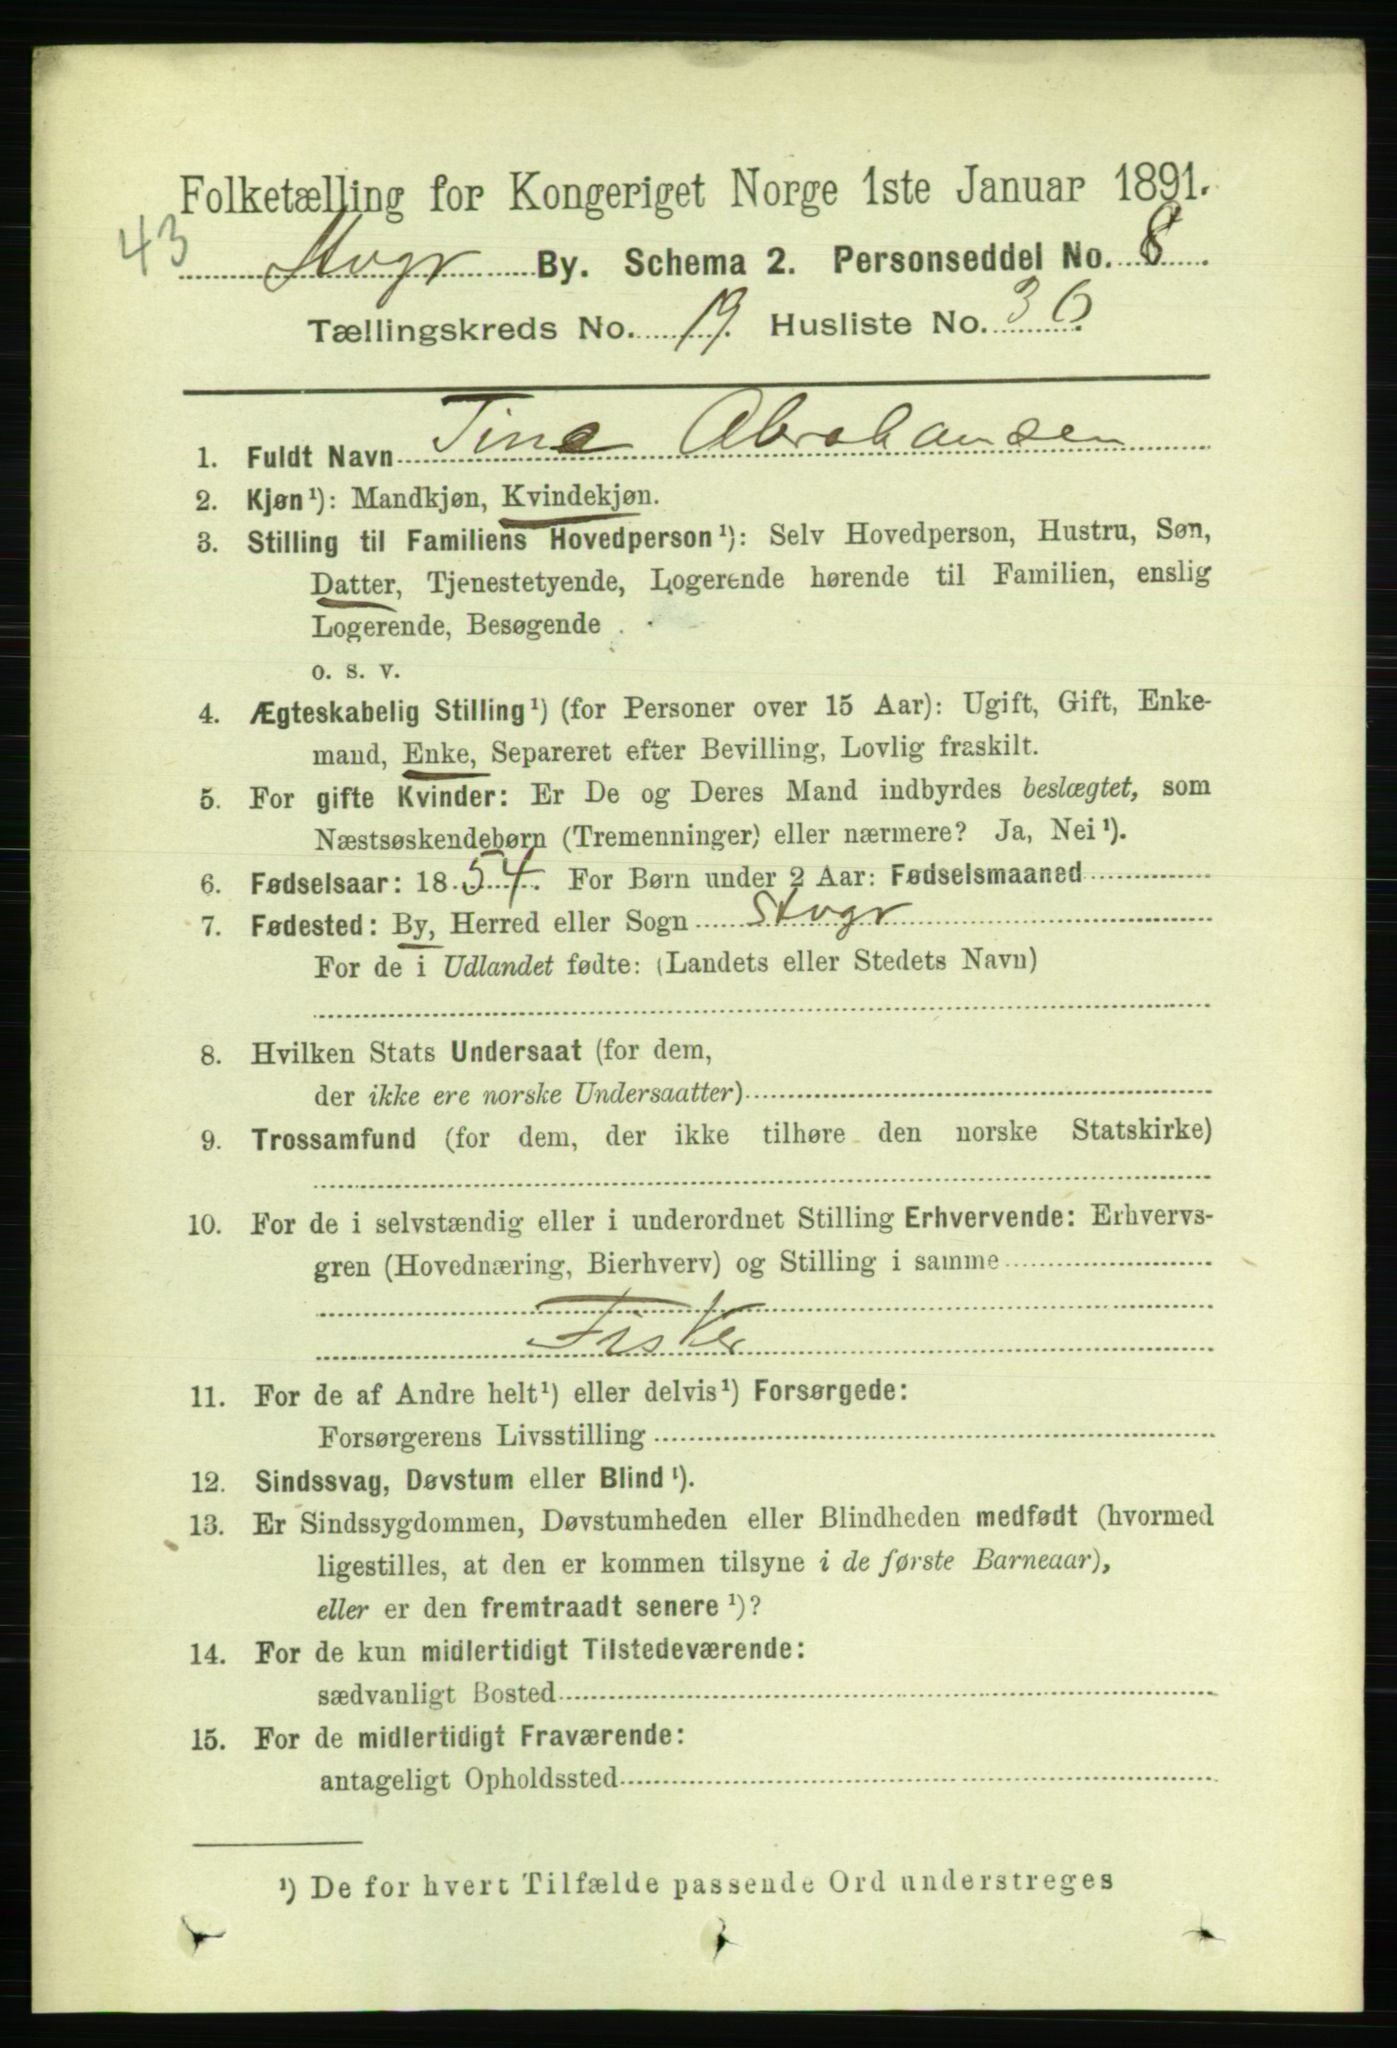 Folketælling for Kongeriget Norge 1ste Januar 1891.
43
Stvgr By. Schema 2. Personseddel No. 8.
Tællingskreds No. 19. Husliste No. 36.
1. Fuldt Navn Tine Abrahamsen
2. Kjøn¹): Mandkjøn, Kvindekjøn.
3. Stilling til Familiens Hovedperson¹): Selv Hovedperson, Hustru, Søn,
Datter, Tjenestetyende, Logerende hørende til Familien, enslig
Logerende, Besøgende
o. s. v.
4. Ægteskabelig Stilling¹) (for Personer over 15 Aar): Ugift, Gift, Enke-
mand, Enke, Separeret efter Bevilling, Lovlig fraskilt.
5. For gifte Kvinder: Er De og Deres Mand indbyrdes beslægtet, som
Næstsøskendebørn (Tremenninger) eller nærmere? Ja, Nei¹).
6. Fødselsaar: 1854. For Børn under 2 Aar: Fødselsmaaned
7. Fødested: By, Herred eller Sogn Stvgr
For de i Udlandet fødte: (Landets eller Stedets Navn)
8. Hvilken Stats Undersaat (for dem,
der ikke ere norske Undersaatter)
9. Trossamfund (for dem, der ikke tilhøre den norske Statskirke)
10. For de i selvstændig eller i underordnet Stilling Erhvervende: Erhvervs-
gren (Hovednæring, Bierhverv) og Stilling i samme
Fisker
11. For de af Andre helt¹) eller delvis¹) Forsørgede:
Forsørgerens Livsstilling
12. Sindssvag, Døvstum eller Blind¹).
13. Er Sindssygdommen, Døvstumheden eller Blindheden medfødt (hvormed
ligestilles, at den er kommen tilsyne i de første Barneaar),
eller er den fremtraadt senere¹)?
14. For de kun midlertidigt Tilstedeværende:
sædvanligt Bosted
15. For de midlertidigt Fraværende:
antageligt Opholdssted
¹) De for hvert Tilfælde passende Ord understreges